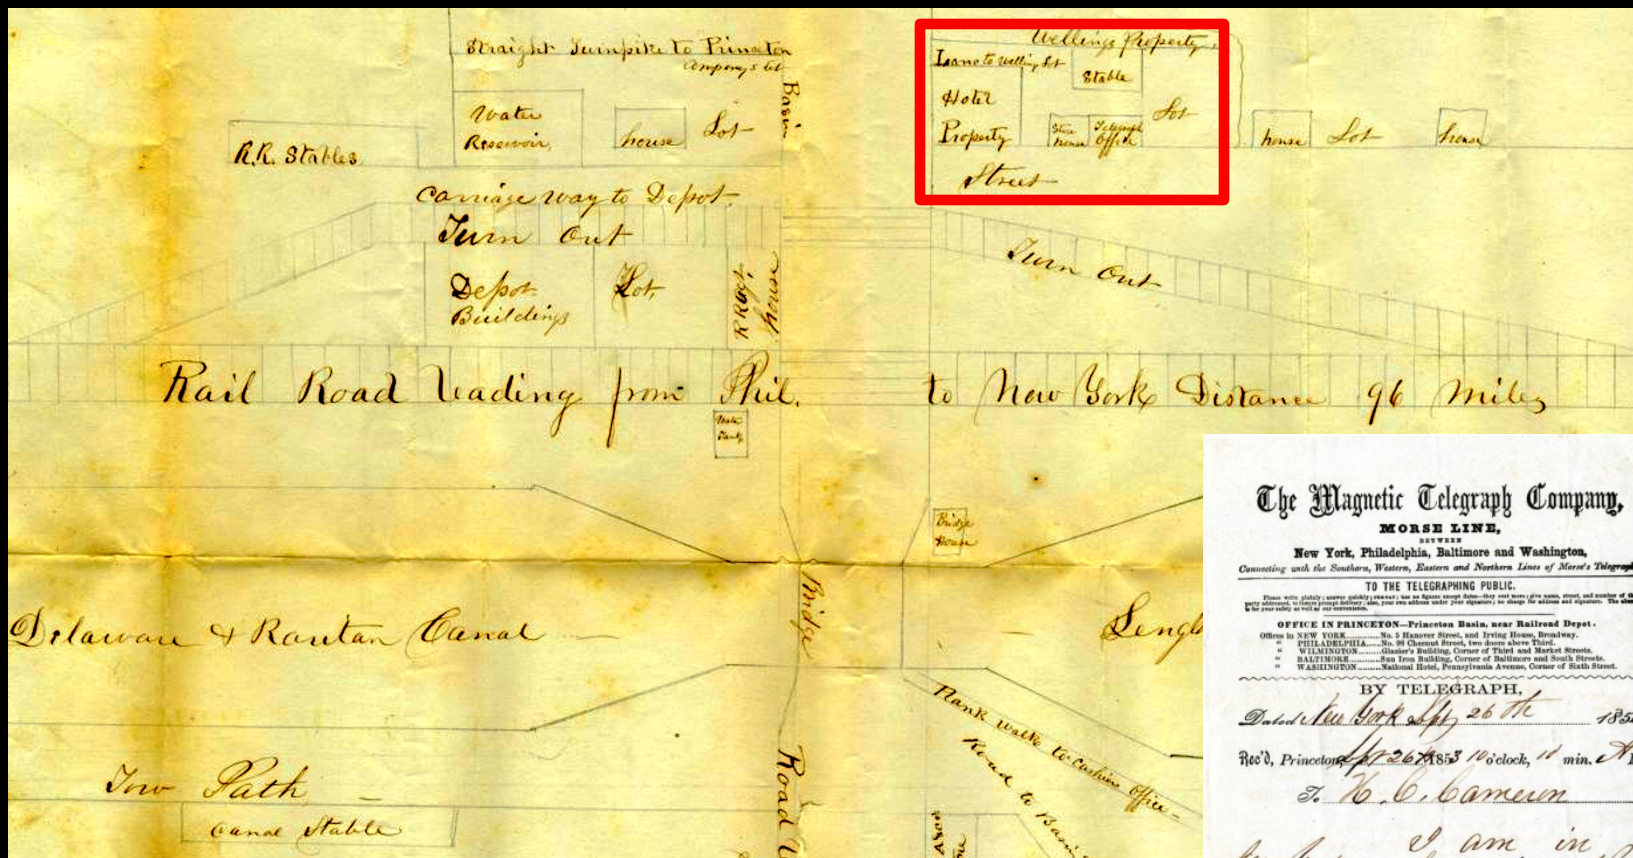 Straight Turnpike to Princeton
Company's Lot
Basin
Water
Reservoir,
house
Lot
R.R. Stables
Carriage way to Depot.
Turn Out
Depot
Buildings
Lot,
Wellings Property.
Lane to Welling Lot
Stable
Hotel
Property
Store
house
Telegraph
Office
Lot
Street
house
Lot
house
Turn Out
Rail Road leading from Phil.
to New York Distance 96 Miles
Water
Tank
Bridge
House
Bridge
Delaware & Raritan Canal
Plank walk to Cashiers Office
Road to Basin
Tow Path
Canal Stable
Road
The Magnetic Telegraph Company,
MORSE LINE,
BETWEEN
New York, Philadelphia, Baltimore and Washington,
Connecting with the Southern, Western, Eastern and Northern Lines of Morse's
TO THE TELEGRAPHING PUBLIC.
OFFICE IN PRINCETON—Princeton Basin, near Railroad Depot.
Offices in NEW YORK..........No. 5 Hanover Street, and Irving House, Broadway.
" PHILADELPHIA.....No. 98 Chesnut Street, two doors above Third.
" WILMINGTON.........Glazier's Building, Corner of Third and Market Streets.
" BALTIMORE...........Sun Iron Building, Corner of Baltimore and South Streets.
" WASHINGTON........National Hotel, Pennsylvania Avenue, Corner of Sixth Street.
BY TELEGRAPH,
Dated New York Sept 26th 185
Rec'd, Princeton, Sept 26th 1853 10 o'clock, 10 min. A
To H. C. Cameron
I am in